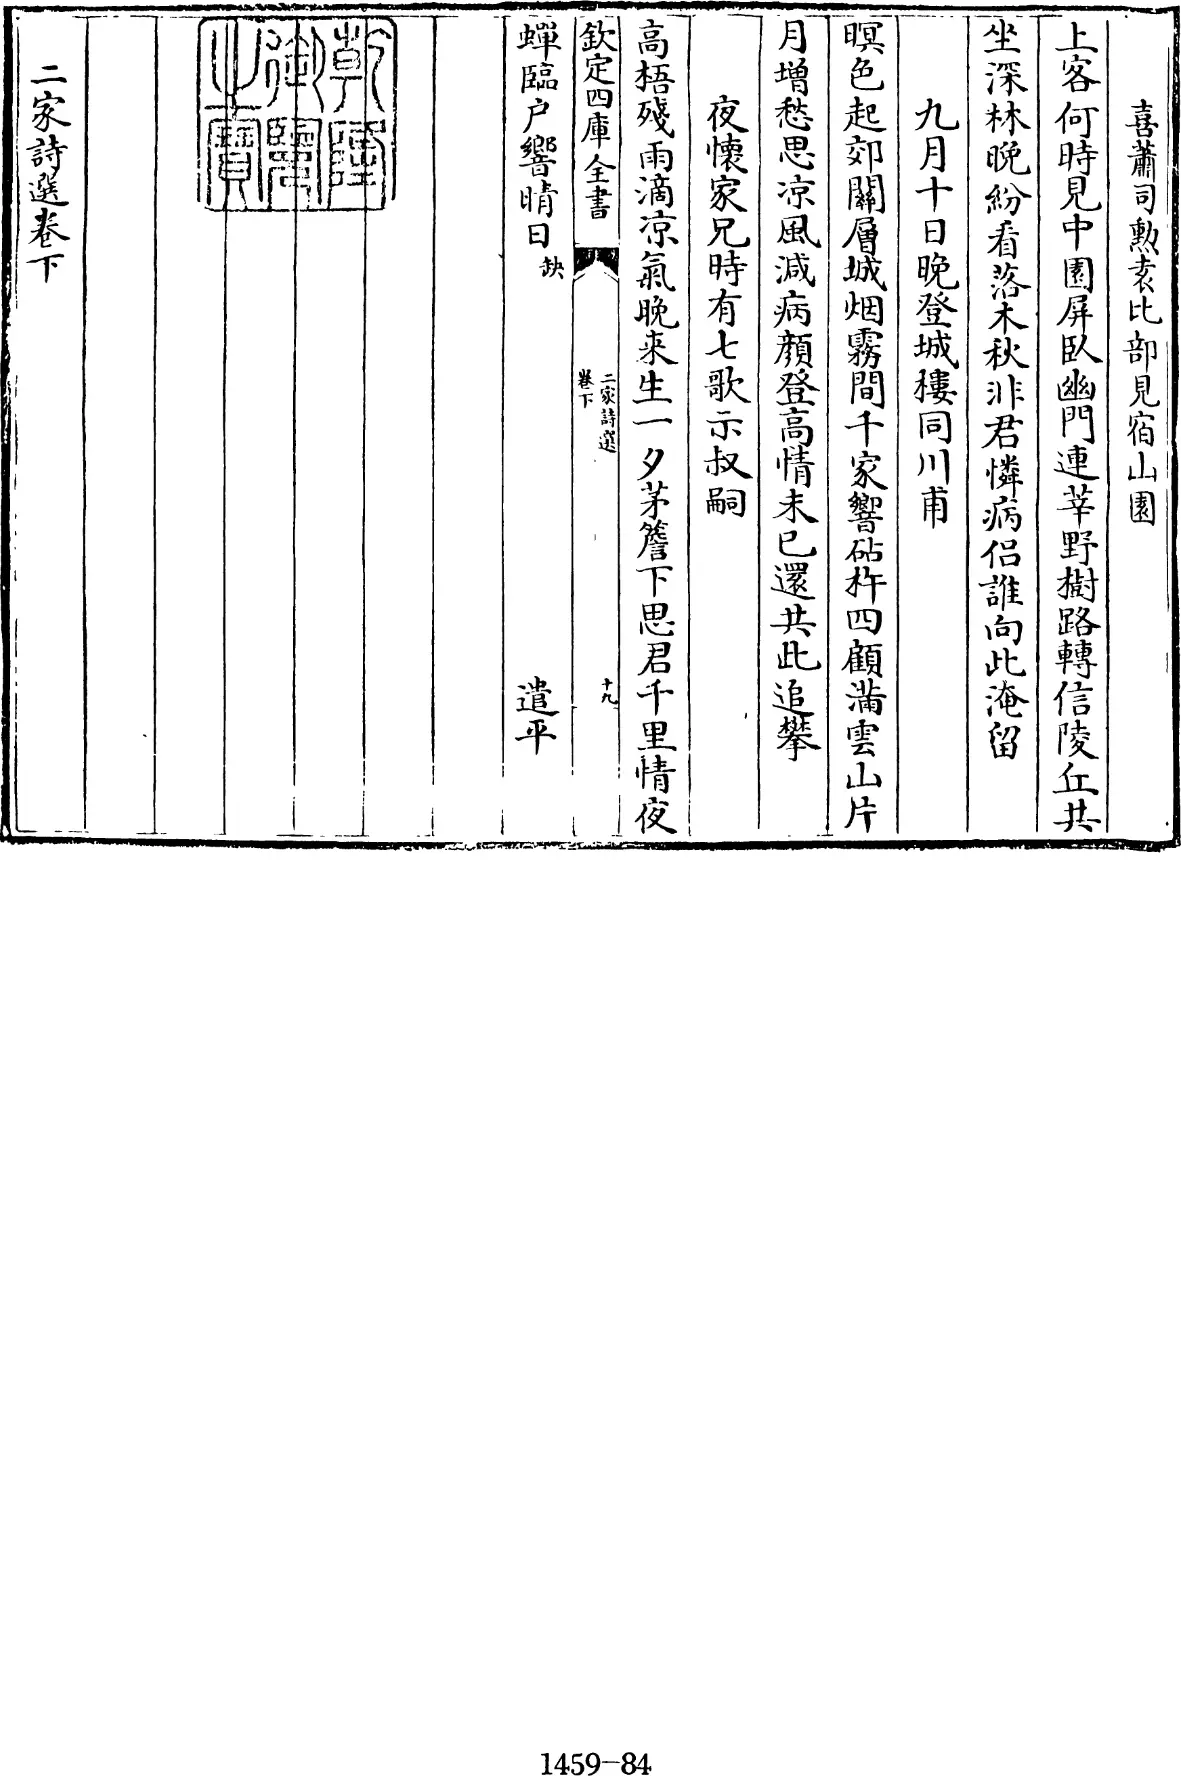 喜蕭司勲袁比部見宿山園
上客何時見中園屏臥幽門連莘野樹路轉信陵丘共
坐深林晚紛看落木秋非君憐病侶誰向此淹留
九月十日晚登城樓同川甫
暝色起郊關層城烟霧間千家響砧杵四顧滿雲山片
月增愁思凉風減病顔登高情未已還共此追攀
夜懐家兄時有七歌示叔嗣
高梧殘雨滴凉氣晚来生一夕茅簷下思君千里情夜
欽定四庫全書
二家詩選
卷下
十九
蟬臨户響晴日缺
遣平
乾隆
御覽
之寶
二家詩選卷下
1459-84